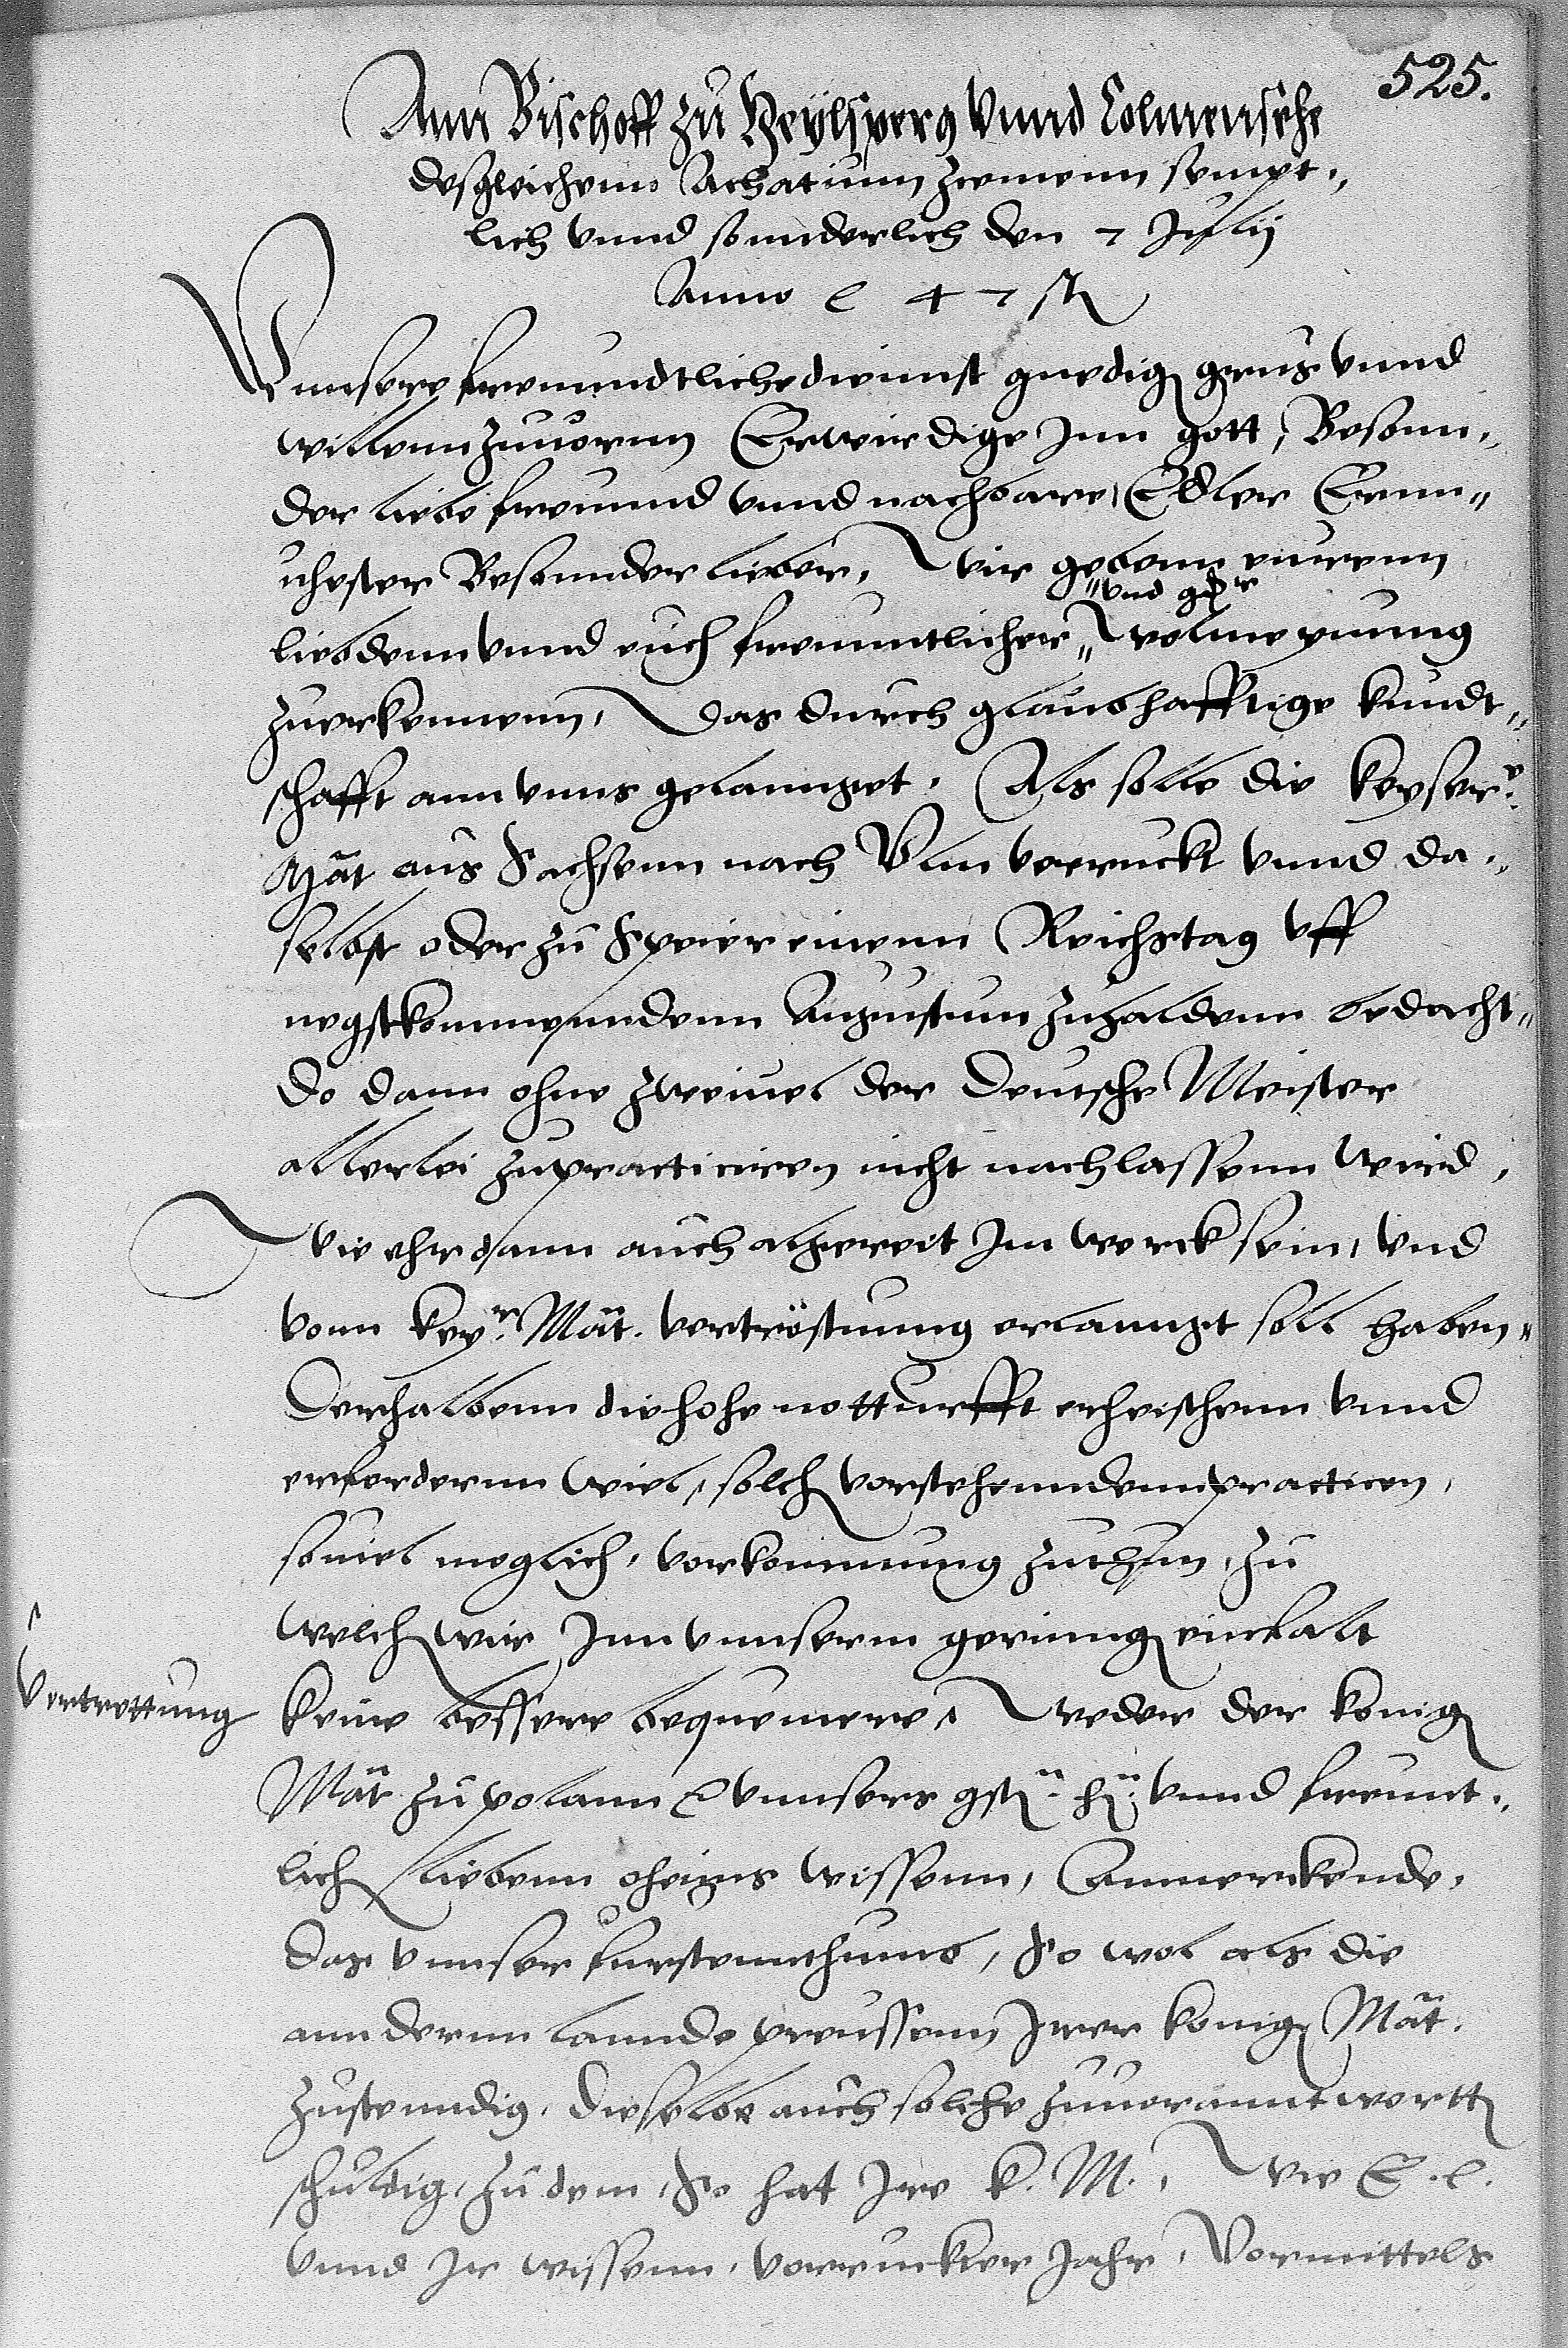 525.
Ann Bischoff zu Heylsperg vnnd Colmensehe
desgleichenn Achatium Zcemenn sempt„
lich vnnd sonnderlich den 7 Julij
Anno 47
Vnnsere freundtliche dienst gnedig grus vnnd
willenn zuuornn Erwirdige Jnn gott, Besonn„
der liebe freunnd vnnd nachbare, Edler Ernn„
uhester Besonnder lieber, Wir gebenn eurenn
„vnd g
liebdenn vnnd euch freuntlicher„ wolmeynung
zuerkennenn, Das durch glaubhafftige kundt„
schafft ann vnns gelannget. Als solle die Keyser.
Mat aus Sachsenn nach Vlm verruckt vnnd da„
selbst oder zu Speier einenn Reichstag vff
negstkommenndenn Augustum zuhaldenn bedacht„
Do dann ohne zweiuel der Deutsche Meister
allerlei zupracticiren nicht nachlassenn wird,
Wie ehr dann auch algereit Jm werck sein, vnd
vonn Key:r Mat. vertröstunng erlannget soll haben„
Derhalbenn die hohe notturfft erheischenn vnnd
erfordernn wiel, solch vorstehenndenn practicen,
souiel moglich, vorkommung zuthun, zu
welch wir Jnn vnnserm gerinng einfalt
vertrettung
keine bessere bequemere, Weder der konig
Mat zu polann vnnsers gst:n h:n vnnd freunt„
lich liebenn oheims wissenn, Anmerckende,
das vnnser furstennthumb, So wol als die
anndernn lannde preussenn Jrer konig Mat.
zustenndig, Dieselbe auch solche zuuorantwortt
schuldig, zu dem, So hat Jre k. M., Wie E. l.
vnnd Jr wissenn, vorruckter Jahr, Vormittels